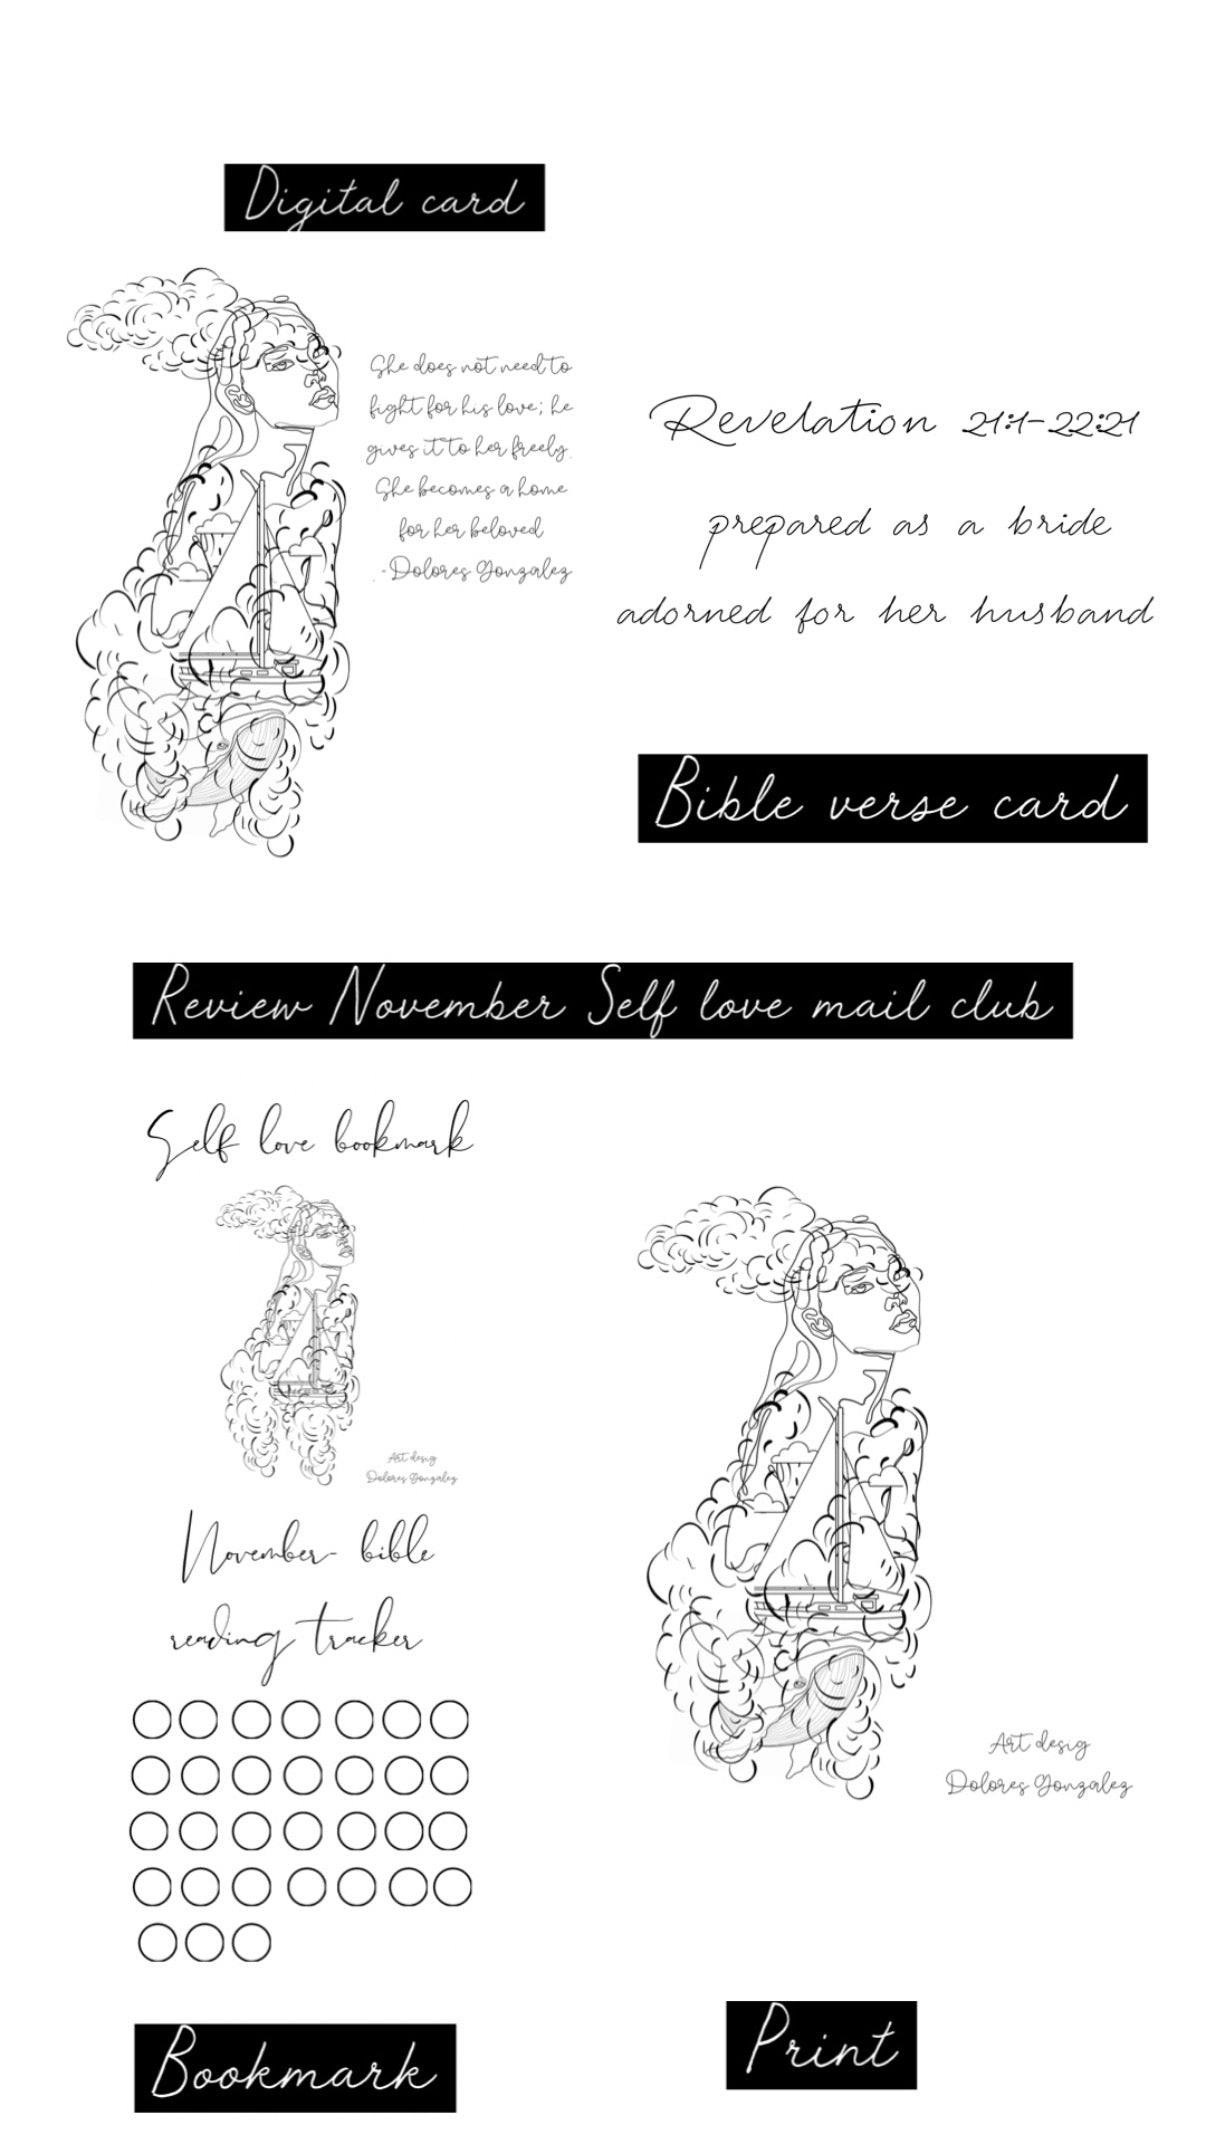 Digital card
She does not need to
fight for his love; he
gives it to her freely.
She becomes a home
for her beloved
.-Dolores Gonzalez
Revelation 21:1-22:21
prepared as a bride
adorned for her husband
Bible verse card
Review November Self love mail club
Self love bookmark
Art desig
Dolores Gonzalez
November- bible
reading tracker
Bookmark
Art desig
Dolores Gonzalez
Print